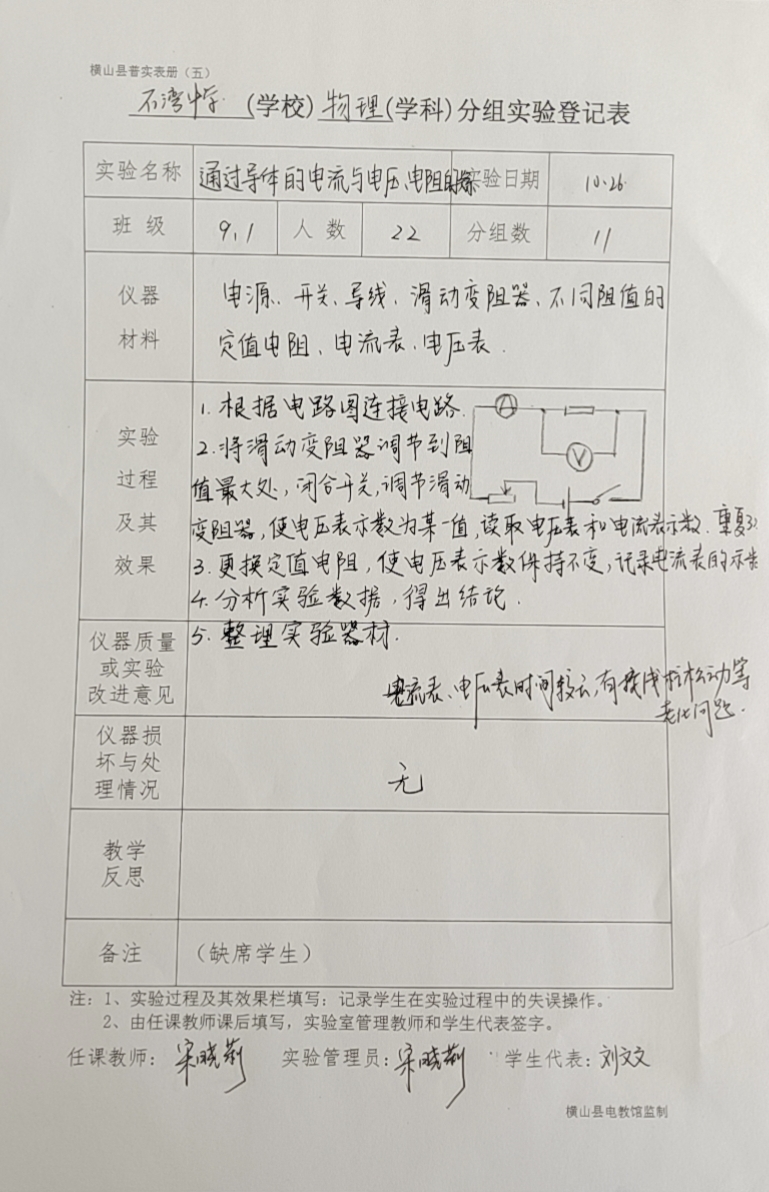 横山县普实表册（五）
石湾中学（学校）物理（学科）分组实验登记表
实验名称 通过导体的电流与电压、电阻的关系 实验日期 10.26
班级 9.1 人数 22 分组数 11
仪器材料
电源、开关、导线、滑动变阻器、不同阻值的
定值电阻、电流表、电压表.
实验过程及其效果
1.根据电路图连接电路.
A
V
2.将滑动变阻器调节到阻
值最大处,闭合开关,调节滑动
变阻器,使电压表示数为某一值,读取电压表和电流表示数.重复
3.更换定值电阻,使电压表示数保持不变,记录电流表的示
4.分析实验数据,得出结论.
5.整理实验器材.
仪器质量或实验改进意见
电流表、电压表时间较云,有接线柱松动等
老化问题.
仪器损坏与处理情况
无
教学反思
备注 （缺席学生）
注：1、实验过程及其效果栏填写：记录学生在实验过程中的失误操作。
2、由任课教师课后填写，实验室管理教师和学生代表签字。
任课教师：宋晓莉 实验管理员：宋晓莉 学生代表：刘文文
横山县电教馆监制